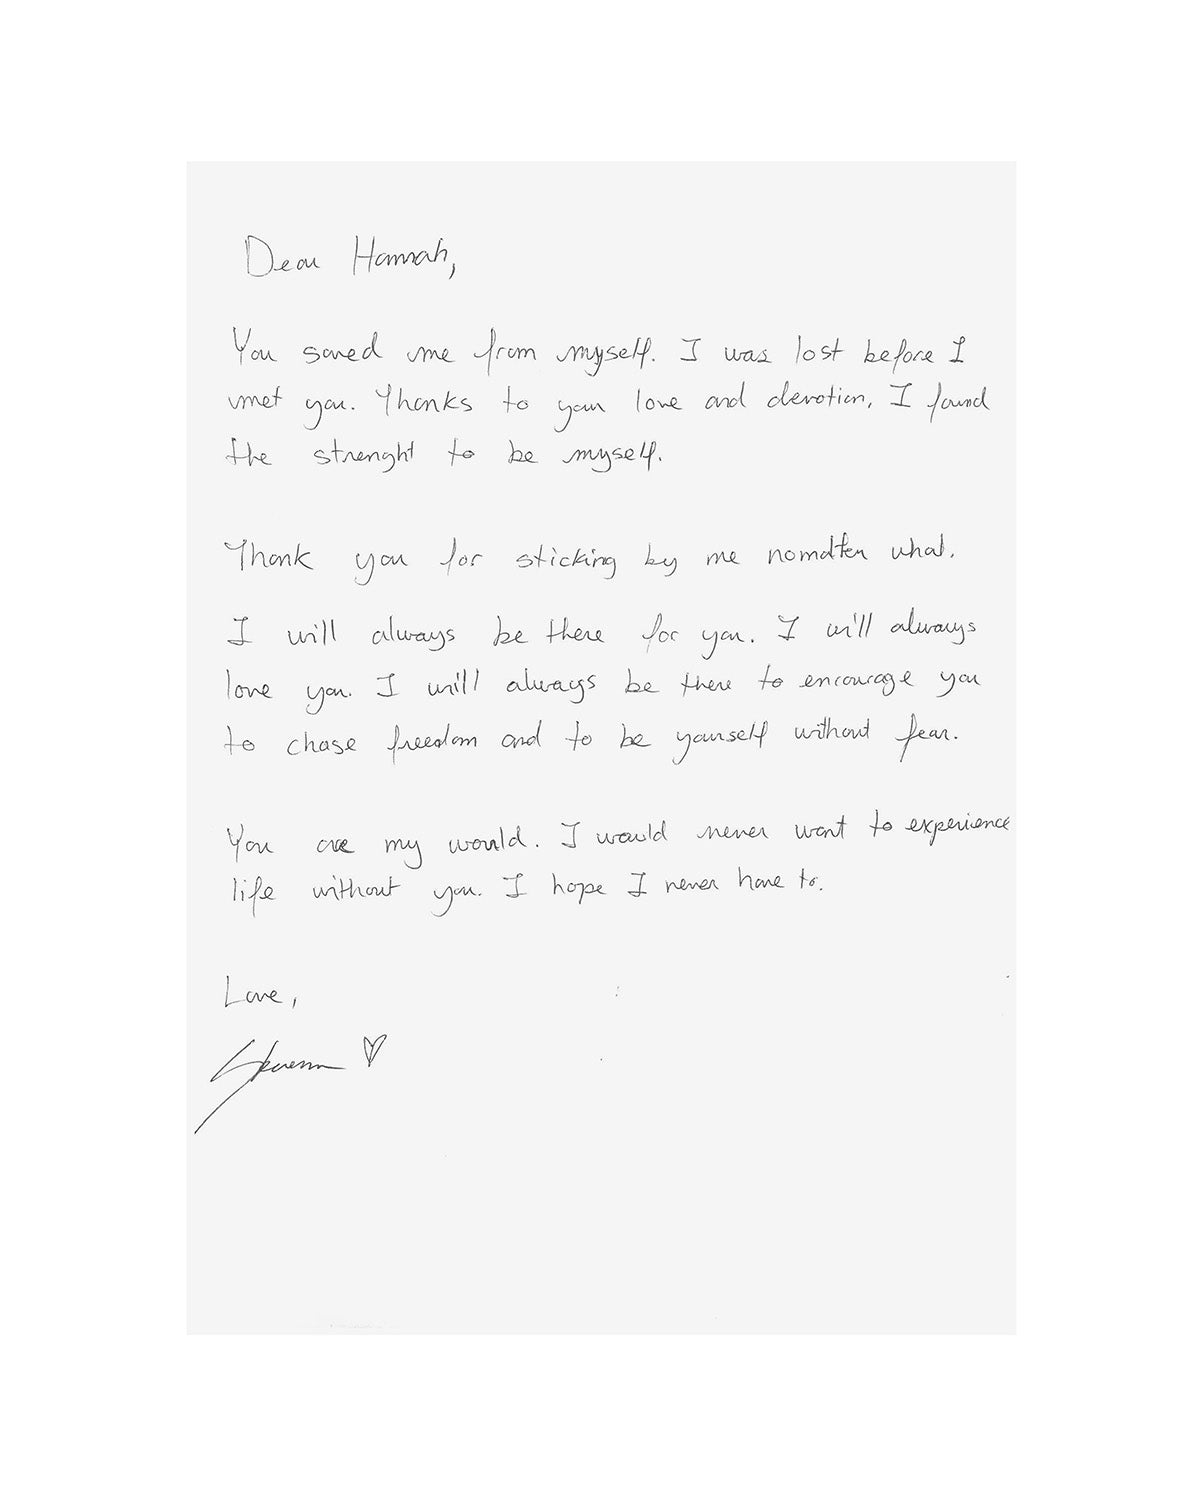 Dear Hannah,
You saved me from myself. I was lost before I
met you. Thanks to your love and devotion, I found
the strenght to be myself.
Thank you for sticking by me nomatter what.
I will always be there for you. I will always
love you. I will always be there to encourage you
to chase freedom and to be yourself without fear.
You are my would. I would never want to experience
life without you. I hope I never have to.
Love,